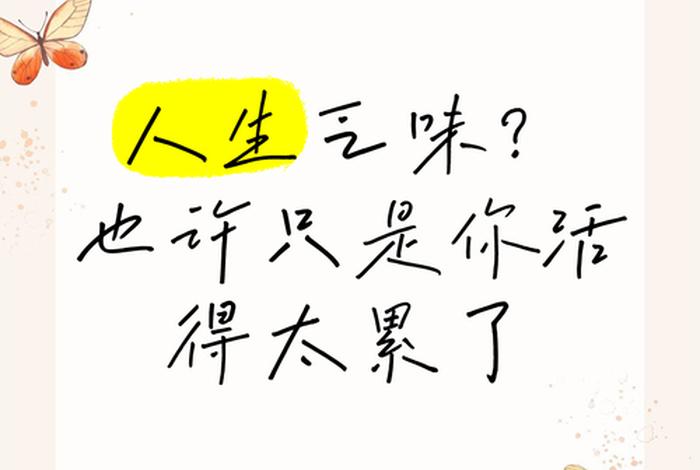 人生乏味?
也许只是你活
得太累了